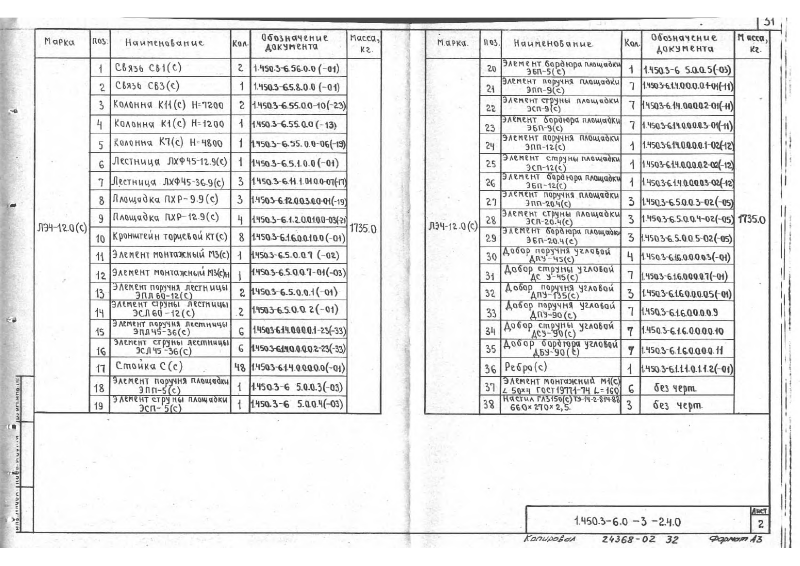 31
Марка Поз. Наименование Кол. Обозначение документа Масса, кг.
ЛЭЧ-12.0(с) 1735.0
1 Связь СВ1(с) 2 1.450.3-6.56.0.0 (-01)
2 Связь СВ3(с) 1 1.450.3-6.5.8.0.0 (-01)
3 Колонна К11(с) Н=7200 2 1.450.3-6.55.00-10(-23)
4 Колонна К1(с) Н=1200 1 1.450.3-6.55.0.0 (-13)
5 Колонна К7(с) Н=4800 1 1.450.3-6.55.0.0-06(-19)
6 Лестница ЛХФ45-12.9(с) 1 1.450.3-6.5.1.0.0 (-01)
7 Лестница ЛХФ45-36.9(с) 3
8 Площадка ПХР-9.9(с) 3
9 Площадка ПХР-12.9(с) 4
10 Кронштейн торцевой КТ(с) 8 1.450.3-6.1.6.0.0.10.0 (-01)
11 Элемент монтажный М3(с) 1 1.450.3-6.5.0.0.7 (-02)
12 Элемент монтажный 1 1.450.3-6.5.0.0.7-01(-03)
13 Элемент поручня лестницы ЭПЛ60-12(с) 2 1.450.3-6.5.0.0.1(-01)
14 Элемент струны лестницы ЭСЛ60-12(с) 2 1.450.3-6.5.0.0.2(-01)
15 Элемент поручня лестницы ЭПЛ45-36(с) 6
16 Элемент струны лестницы ЭСЛ45-36(с) 6
17 Стойка С(с) 48 1.450.3-6.1.4.0.0.0.0(-01)
18 Элемент поручня площадки ЭПП-5(с) 1 1.450.3-6 5.0.0.3(-03)
19 Элемент струны площадки ЭСП-5(с) 1 1.450.3-6 5.0.0.4(-03)
Марка Поз. Наименование Кол. Обозначение документа Масса, кг.
ЛЭЧ-12.0(с) 1735.0
20 Элемент бордюра площадки ЭБП-5(с) 1 1.450.3-6 5.0.0.5(-03)
21 Элемент поручня площадки ЭПП-9(с) 7 1.450.3-6.1.4.0.0.0.1-01(-11)
22 Элемент струны площадки ЭСП-9(с) 7 1.450.3-6.1.4.0.0.0.2-01(-11)
23 Элемент бордюра площадки ЭБП-9(с) 7 1.450.3-6.1.4.0.0.0.3-01(-11)
24 Элемент поручня площадки ЭПП-12(с) 1 1.450.3-6.1.4.0.0.0.1-02(-12)
25 Элемент струны площадки ЭСП-12(с) 1 1.450.3-6.1.4.0.0.0.2-02(-12)
26 Элемент бордюра площадки ЭБП-12(с) 1 1.450.3-6.1.4.0.0.0.3-02(-12)
27 Элемент поручня площадки ЭПП-20.4(с) 3 1.450.3-6.5.0.0.3-02 (-05)
28 Элемент струны площадки ЭСП-20.4(с) 3 1.450.3-6.5.0.0.4-02(-05)
29 Элемент бордюра площадки ЭБП-20.4(с) 3 1.450.3-6.5.0.0.5-02(-05)
30 Добор поручня угловой ДПУ-45(с) 4 1.450.3-6.1.6.0.0.0.3(-01)
31 Добор струны угловой ДСУ-45(с) 7 1.450.3-6.1.6.0.0.0.7(-01)
32 Добор поручня угловой ДПУ-135(с) 3 1.450.3-6.1.6.0.0.0.5(-01)
33 Добор поручня угловой ДПУ-90(с) 7 1.450.3-6.1.6.0.0.0.9
34 Добор струны угловой ДСУ-90(с) 7 1.450.3-6.1.6.0.0.0.10
35 Добор бордюра угловой ДБУ-90(с) 7 1.450.3-6.1.6.0.0.0.11
36 Ребро(с) 1 1.450.3-6.1.1.1.0.1.1.2(-01)
37 Элемент монтажный М1(с) L 50×4 ГОСТ 19771-74 L=160 6 без черт.
38 Настил 660×270×2,5 3 без черт.
1.450.3-6.0-3-2.4.0
Лист
2
Копировал 24368-02 32 Формат А3